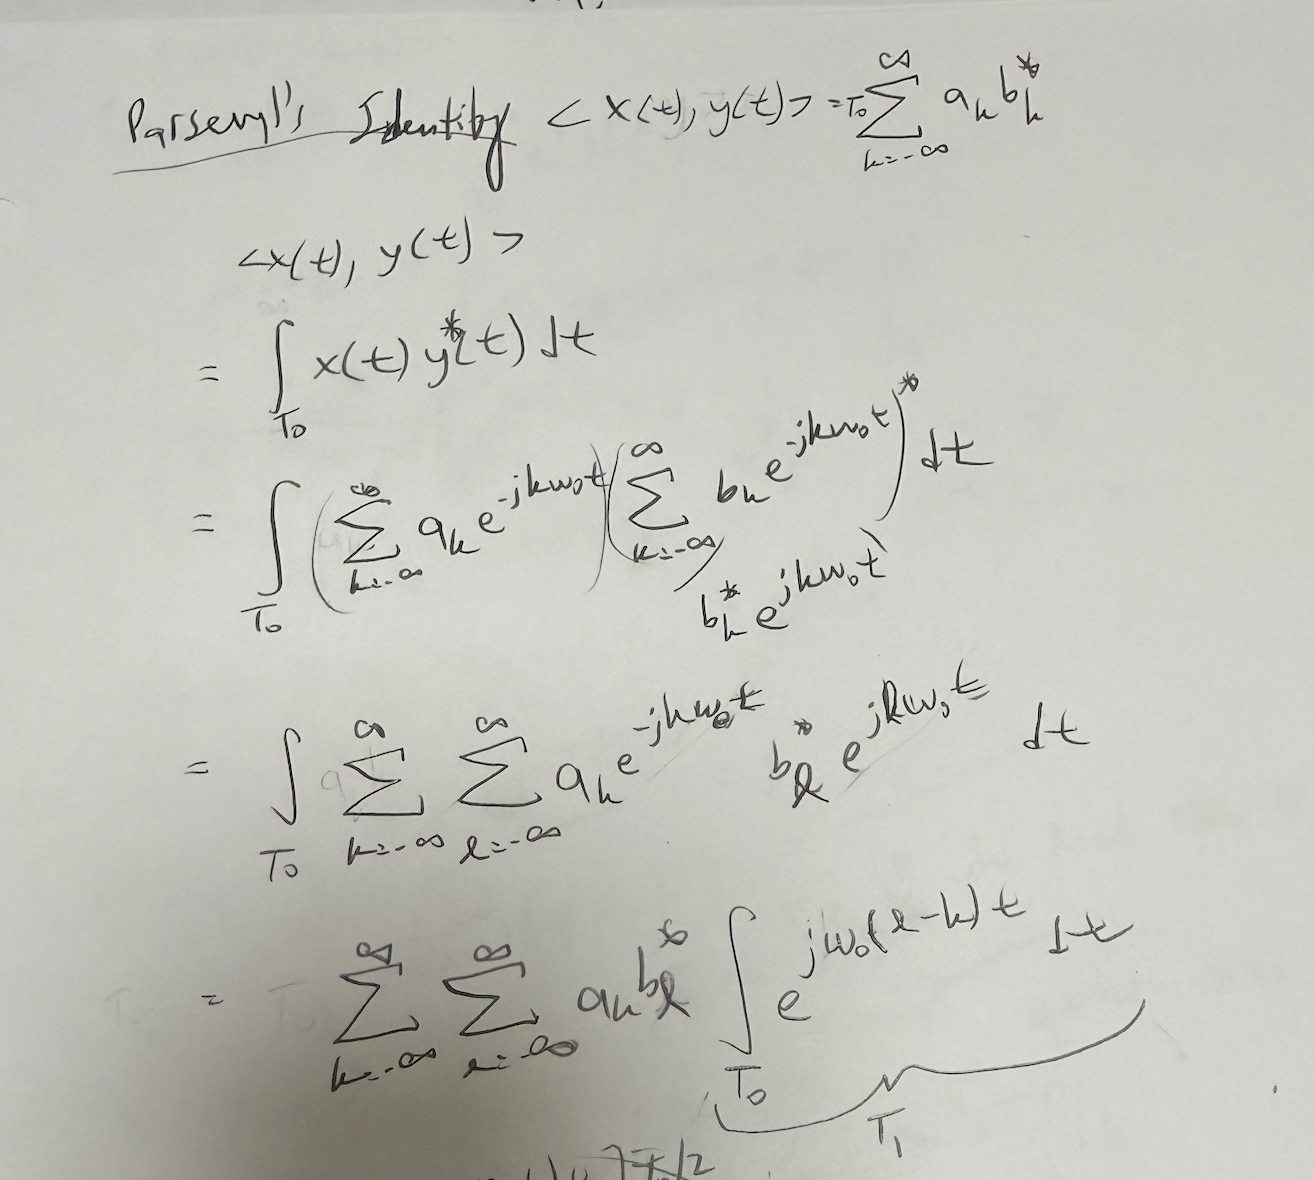 Parseval's Identity < x(t), y(t) > = T₀ ∑_{k=-∞}^{∞} a_k b_k^*
<x(t), y(t) >
= ∫_{T₀} x(t) y^*(t) dt
= ∫_{T₀} ( ∑_{k=-∞}^{∞} a_k e^{-jkω₀t} ) ( ∑_{k=-∞}^{∞} b_k e^{-jkω₀t} )^* dt
b_k^* e^{jkω₀t}
= ∫_{T₀} ∑_{k=-∞}^{∞} ∑_{l=-∞}^{∞} a_k e^{-jkω₀t} b_l^* e^{jlω₀t} dt
= ∑_{k=-∞}^{∞} ∑_{l=-∞}^{∞} a_k b_l^* ∫_{T₀} e^{jω₀(l-k)t} dt
T₁